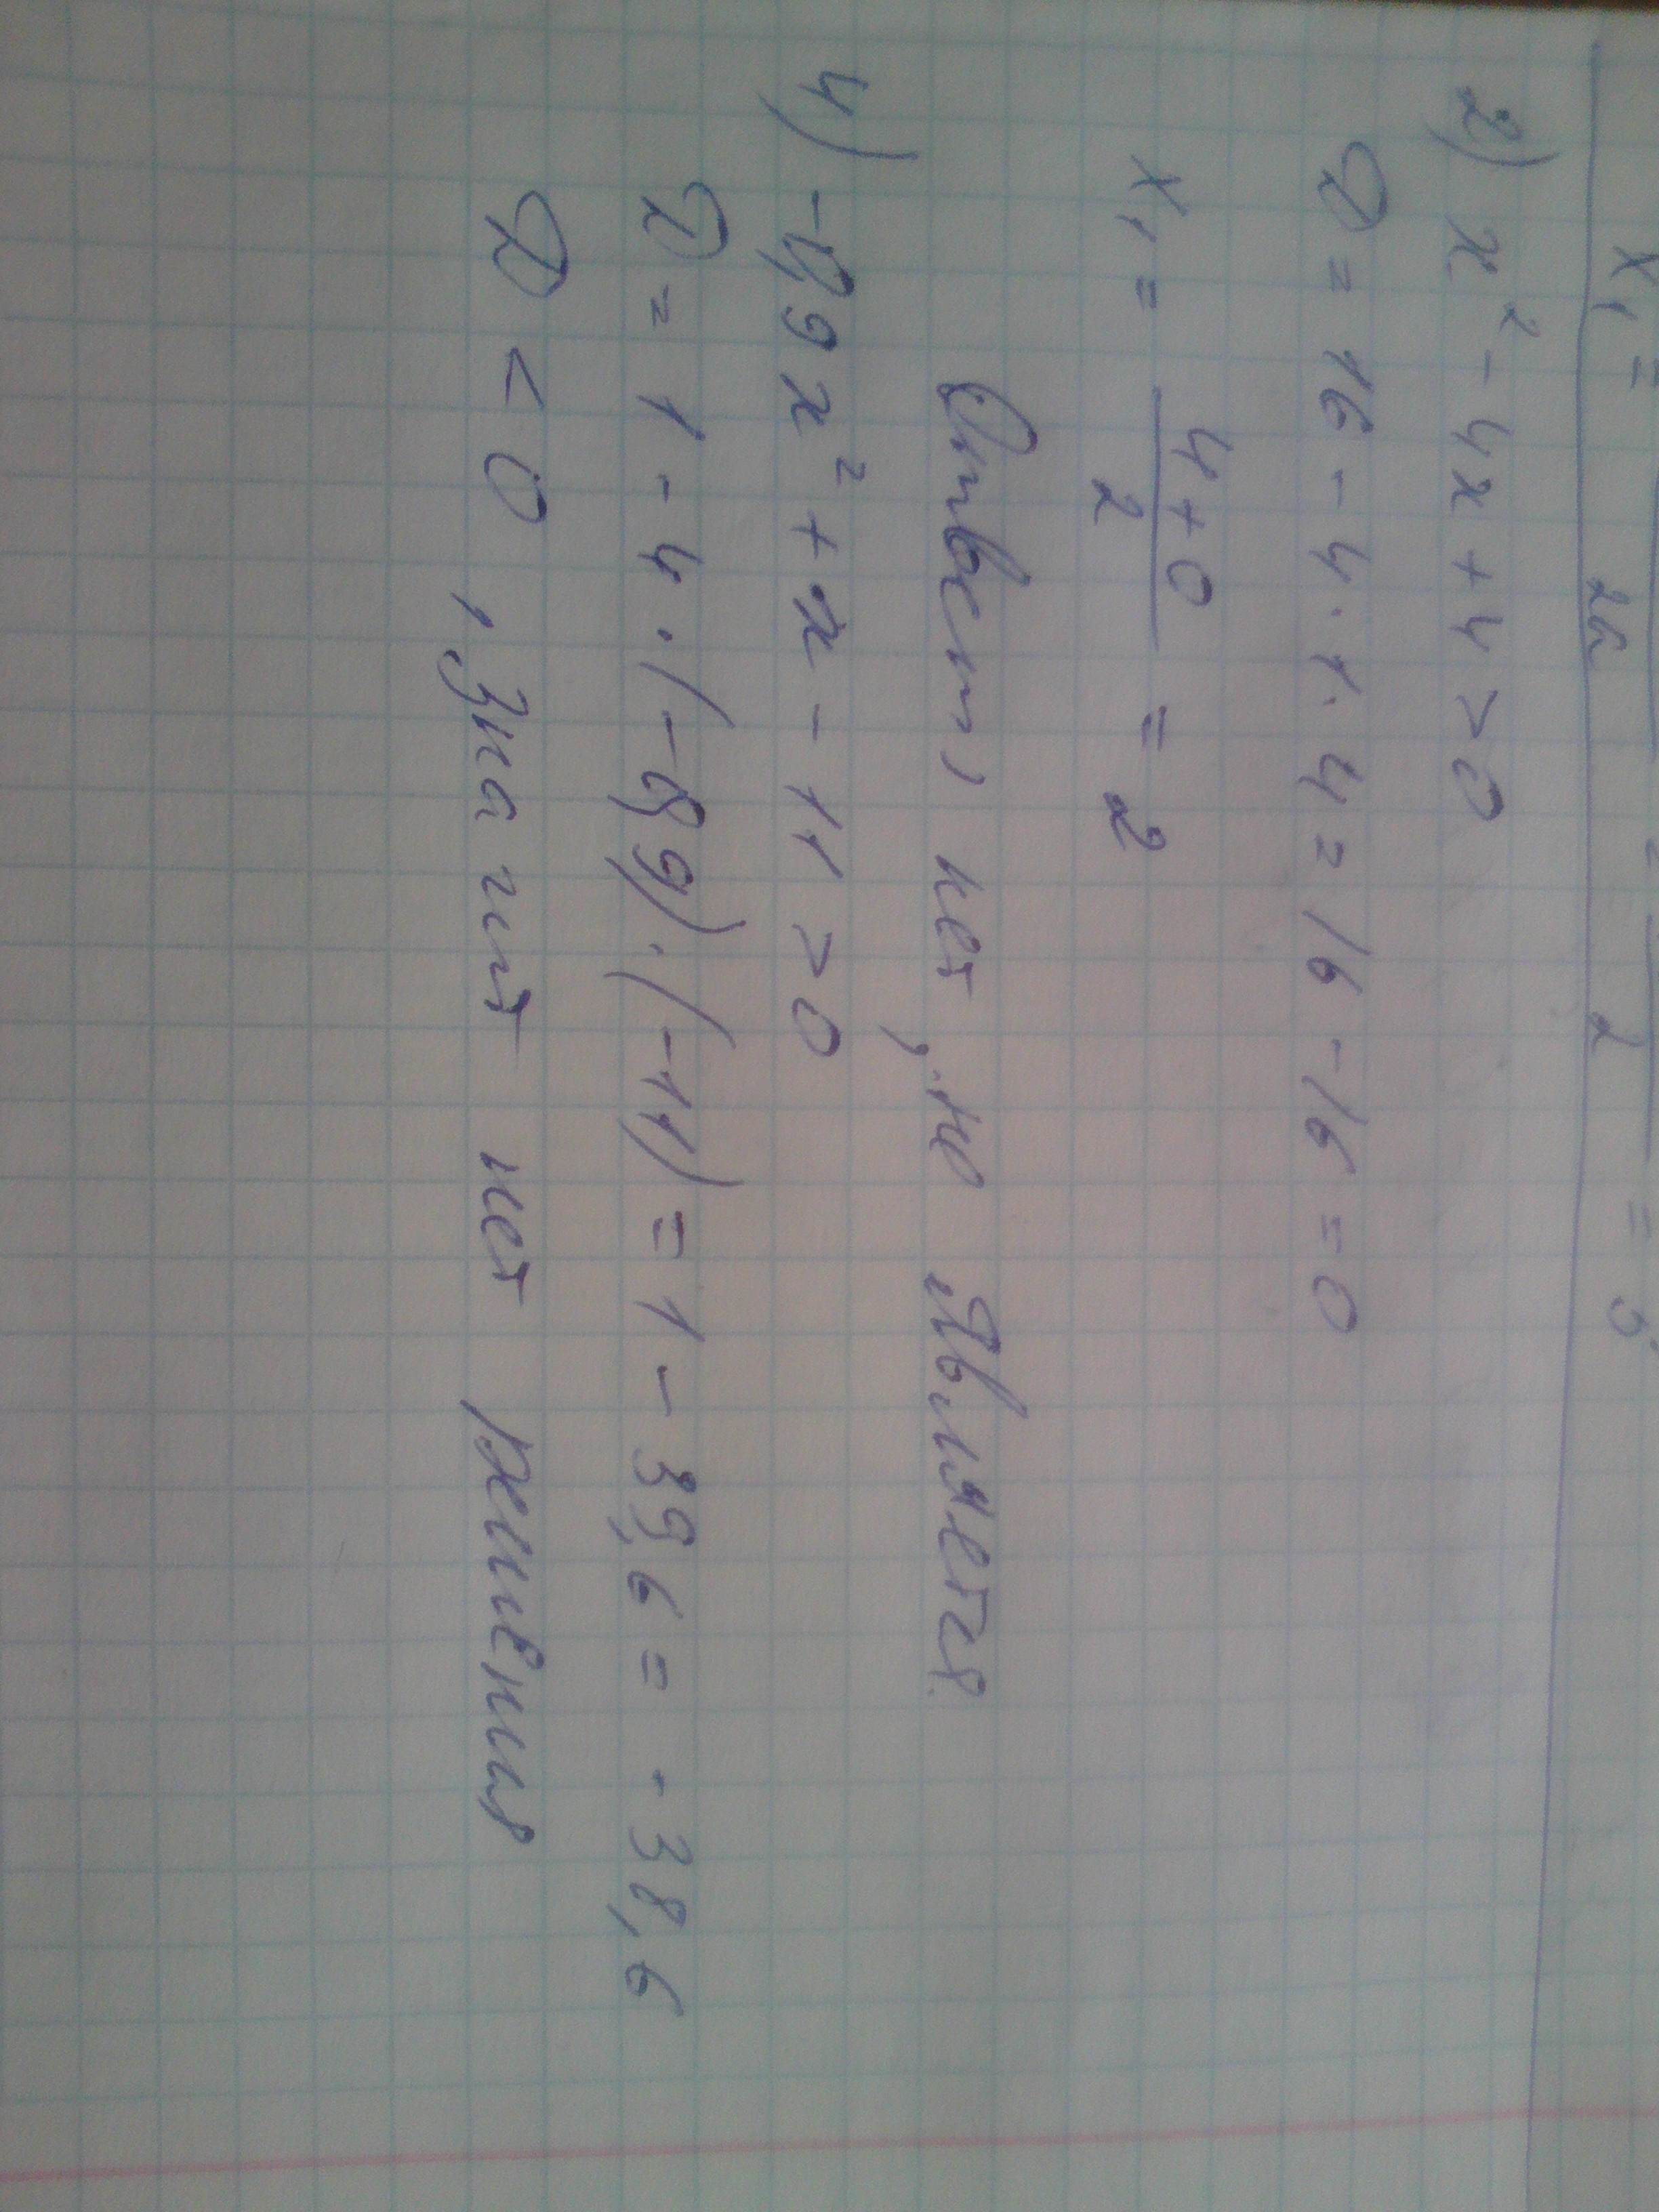 x₁ = 2a 2 =
2) x² - 4x + 4 > 0
D = 16 - 4 · 1 · 4 = 16 - 16 = 0
x₁ = (4 + 0)/2 = 2
Ответ, нет, не является
4) -0,9x² + x - 11 > 0
D = 1 - 4 · (-0,9) · (-11) = 1 - 39,6 = - 38,6
D < 0, значит нет решения